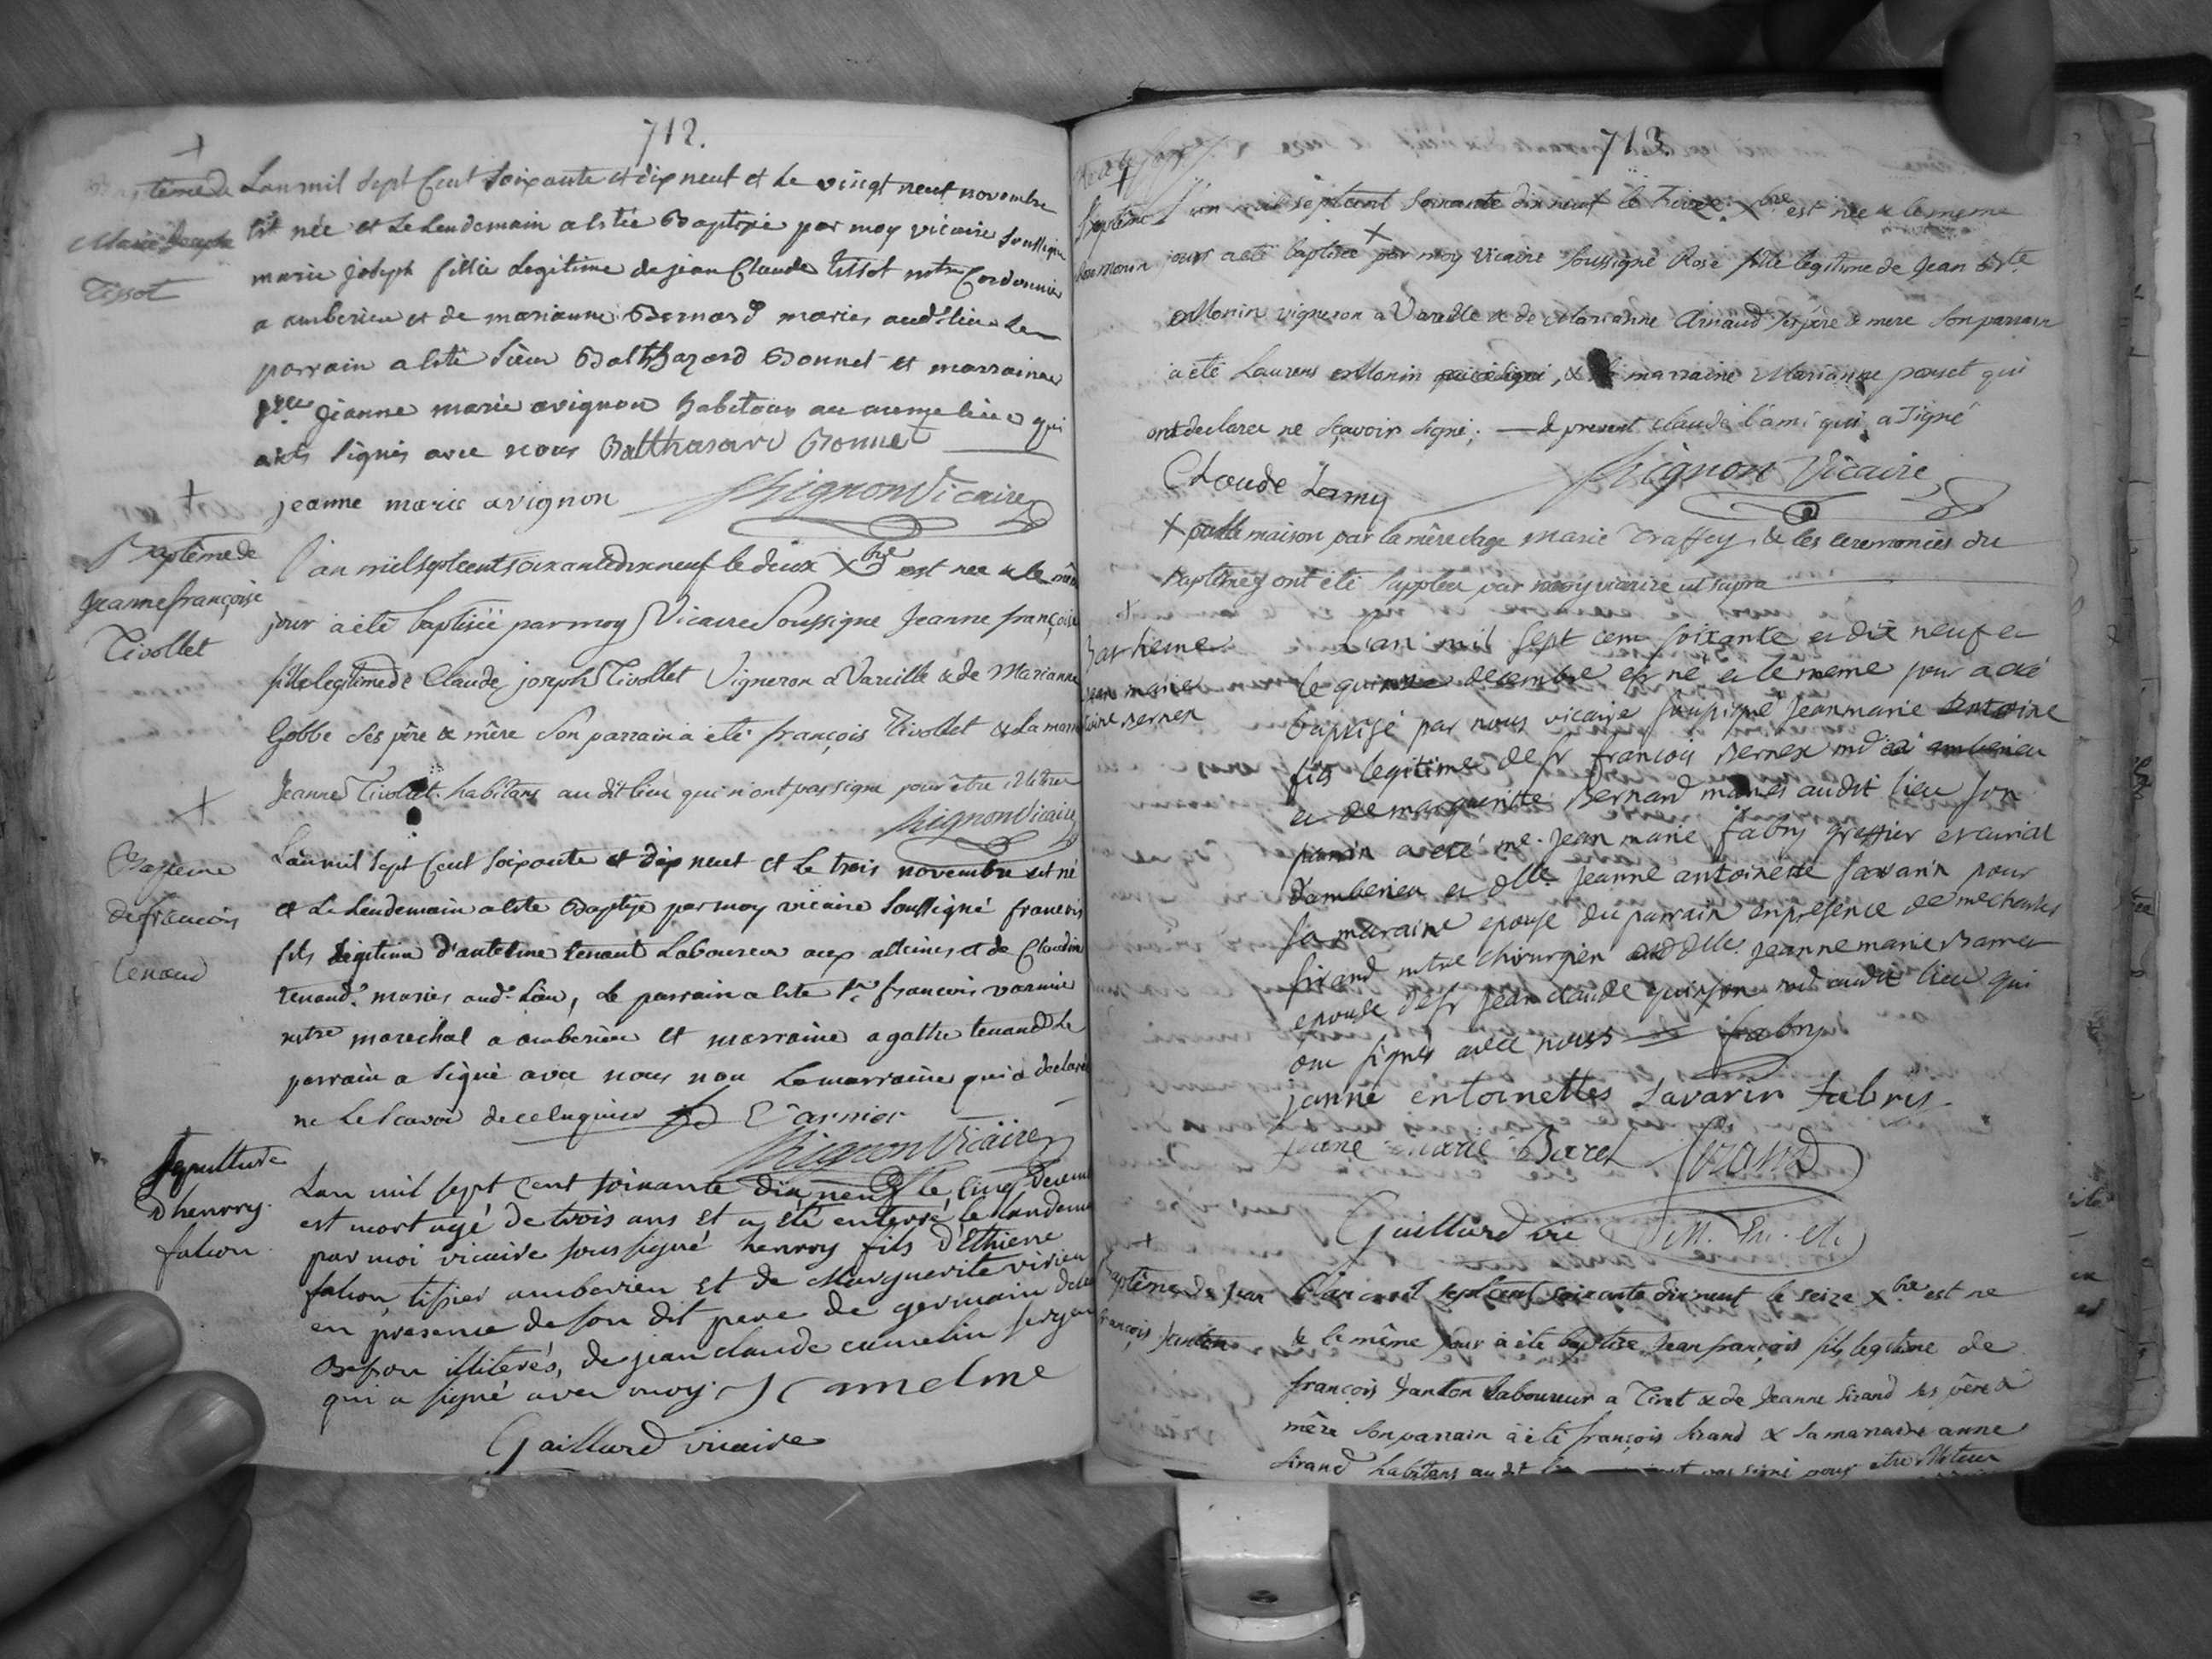 712.
Baptême de
Marie Joseph
Tissot
Lan mil Sept Cent Soixante et dix neuf et Le vingt neuf novembre
Est née et Le Lendemain a Esté Baptisée par moy vicaire Soussigné
marie joseph fillie Legitime de jean Claude tissot mtre Cordonnier
a amberieu et de marianne Bernard mariés aud. lieu Le
parrain a Esté Sieur Balthazard Bonnet et marraine
Dlle Jeanne marie avignon habitans au meme lieu qui
ont signés avec nous Balthasard Bonnet
jeanne marie avignon Vicaire
Baptême de
Jeanne françoise
Tivollet
l'an mil sept cent soixante dix neuf le deux Xbre est nee & le même
jour à été baptisée par moy Vicaire Soussigné Jeanne françoise
fille legitime de Claude joseph Tivollet Vigneron a Vareille & de Marianne
Gobbe Ses père & mère Son parrain à été françois Tivollet & la marraine
Jeanne Tivollet habitans au dit lieu qui n'ont pas signé pour être illitéré
Vicaire
Bapteme
de francois
tenand
Lan mil Sept Cent Soixante et dix neuf et Le trois novembre est né
et Le Lendemain a Esté Baptisé par moy vicaire Soussigné francois
fils Legitime d'antelme tenand Laboureur aux alleimes et de Claudine
tenand mariés aud. Lieu, Le parrain a Esté Sr francois varnier
mtre marechal a amberieu et marraine agathe tenand Le
parrain a Signé avec nous non La marraine qui a declaré
ne Le Scavoir de ce Enquise Varnier
Vicaire
Sepulture
d'henrry
falion
Lan mil sept cent soixante dix neuf le cinq
est mort agé de trois ans et a été enterré le landemain
par moi vicaire soussigné henrry fils d'Ethiene
falion tissier amberieu et de Marguerite vivien
en presence de son dit pere de germain
illiterés, de jean claude camelin sergent
qui a signé avec moy. J Camelme
Gaillard vicaire
713.
Baptême
Rose Monin
l'an mil sept cent Soixante dix neuf le treize Xbre est née & le meme
jour a été baptisée X par moy Vicaire Soussigné Rose fille legitime de Jean Bte
Monin vigneron a Vareille & de Marianne Arnaud ses père & mere Son parrain
a été Laurens Monin qui a signé, & la marraine Marianne ponset qui
ont declaré ne Sçavoir signé. — & present claude l'ami qui a signé
Claude Lamy Vicaire
X maison par la mère sage Marie Traffey & les ceremonies du
baptême ont été supplées par moy vicaire ut supra
Batheme
jean marie
antoine Bernex
L'an mil sept cent soixante et dix neuf et
le quinze decembre est né et le meme jour a été
baptisé par nous vicaire soussigné Jean marie Antoine
fils legitime de Sr françois Bernex md a amberieu
et de margueritte Bernard mariés audit lieu son
parrain a eté me. Jean marie fabry greffier et curial
d'amberieu et dlle Jeanne antoinette savarin pour
sa maraine epouse du parrain en presence de me charles
sirand mtre chirurgien et dlle Jeanne marie Barret
epouse de Sr Jean claude quinson audit lieu qui
ont signés avec nous fabry
janne entoinettes Savarin Fabris
jeane marie Baret Sirand
Gaillard vic
Baptême de jean
françois Janton
L'an mil sept cent soixante dix neuf le seize Xbre est né
& le même jour à été baptisé Jean françois fils legitime de
françois Janton Laboureur a Tiret & de Jeanne Sirand ses père &
mère Son parrain à été françois Sirand & Sa marraine anne
Sirand habitans audit lieu qui n'ont pas signé pour etre illiteres